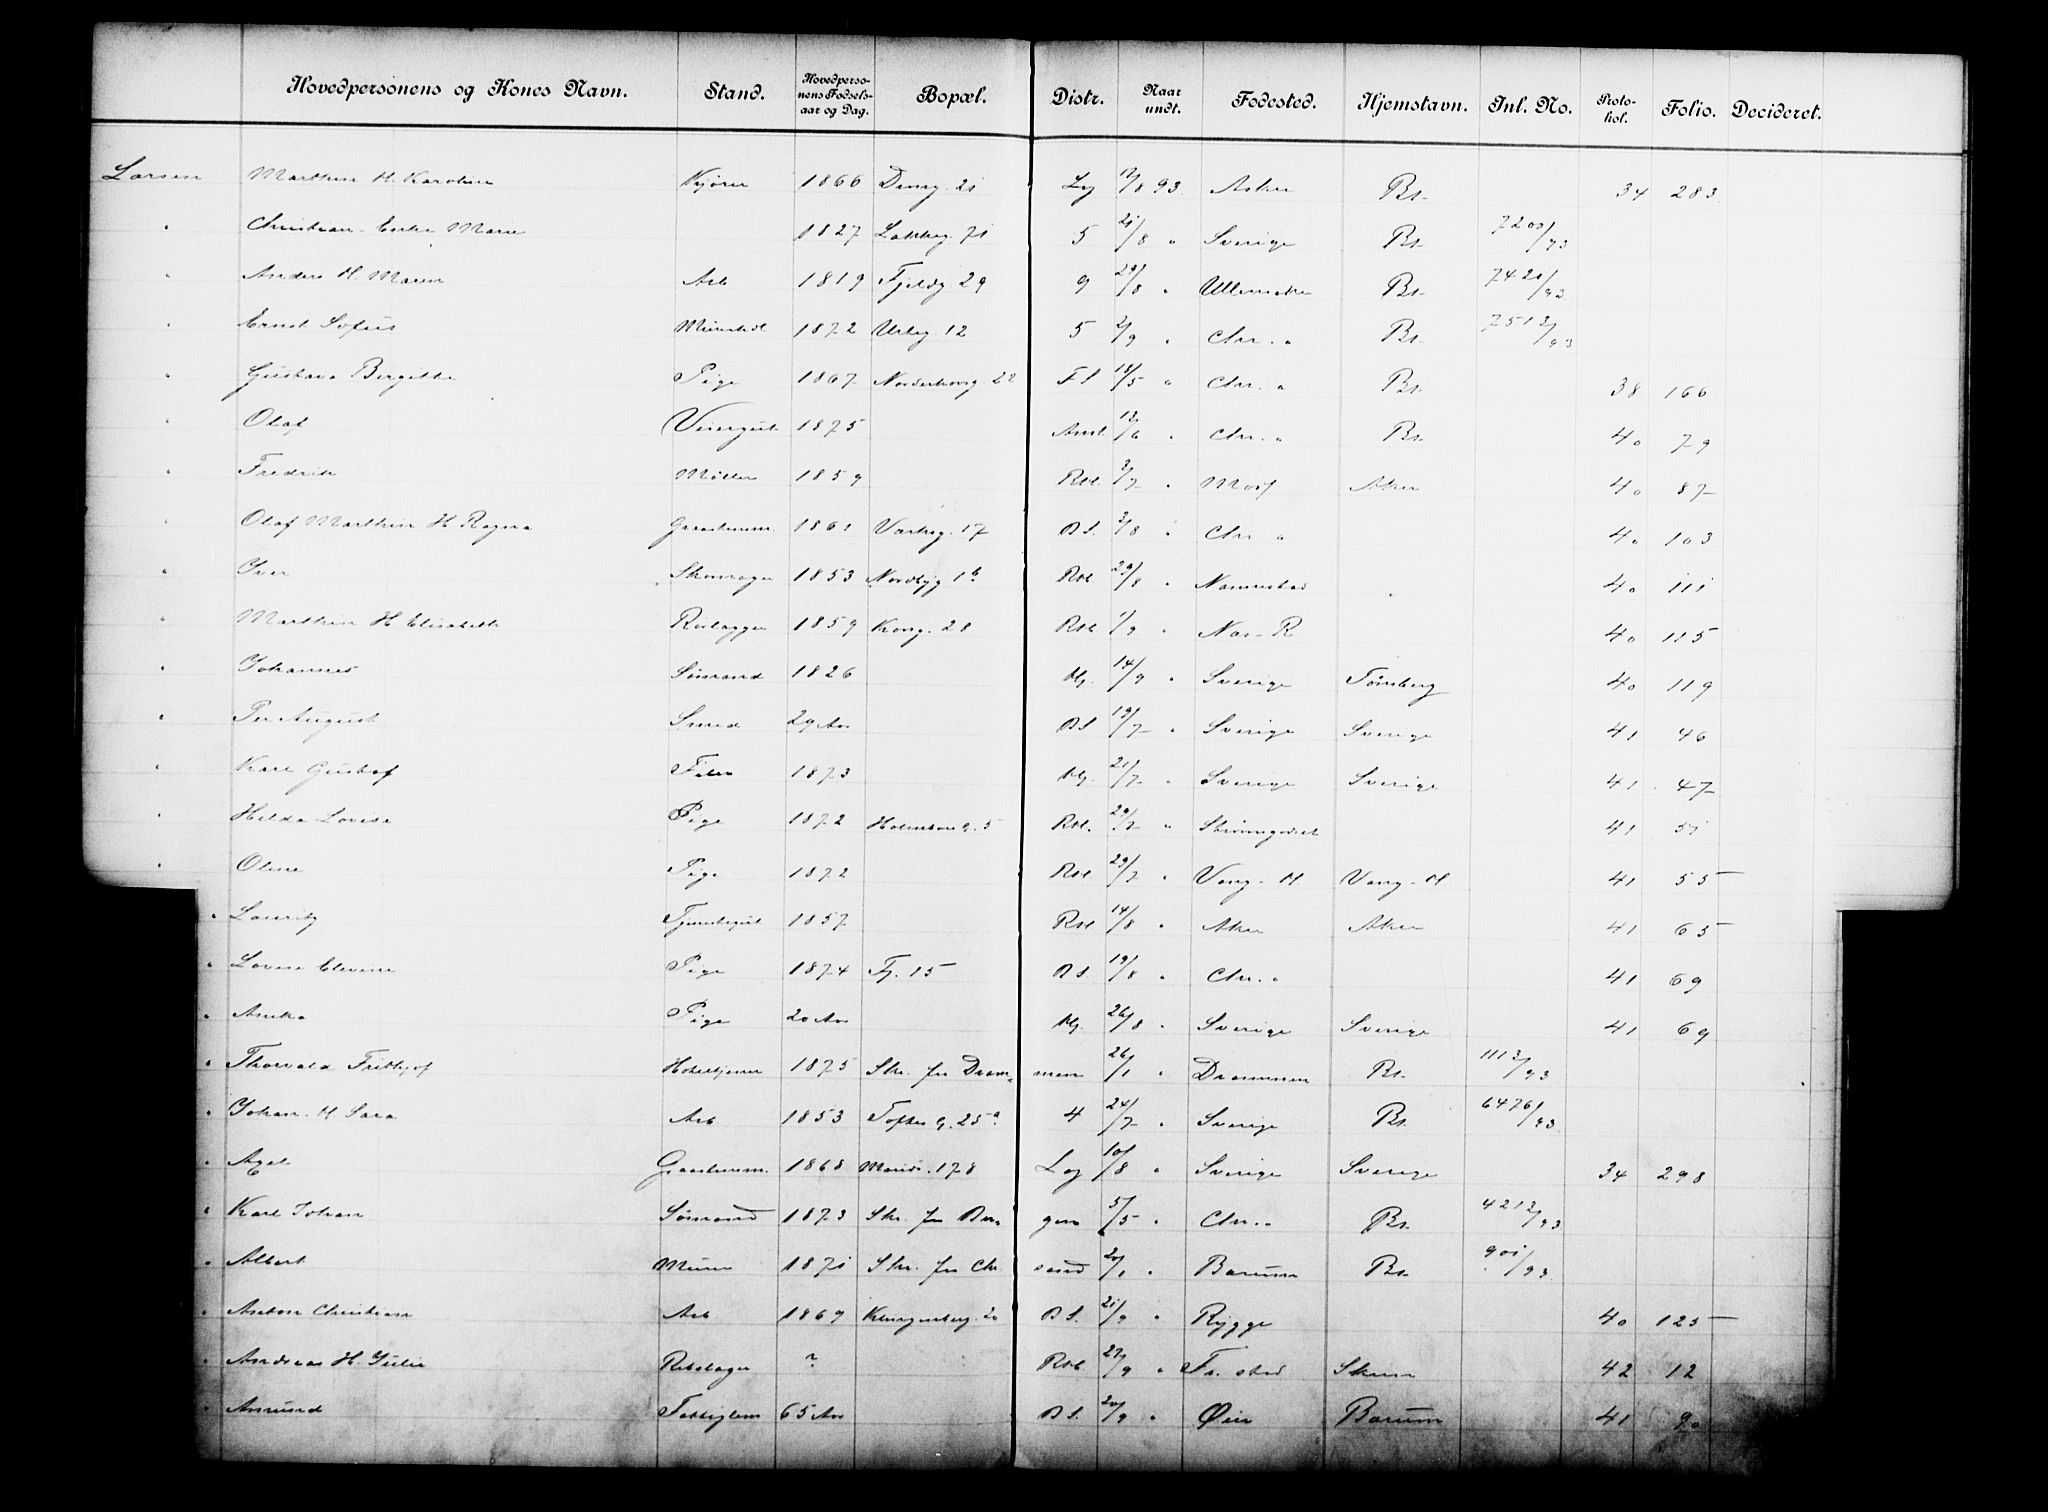 Hovedpersonens og Kones Navn. Stand. Hovedpersonens Fødselsaar og Dag. Bopæl. Distr. Naar undt. Fødested. Hjemstavn. Inl. No. Protokol. Folio. Decideret.
Larsen Marthin H. Karoline Kjører 1866 21 Lg 12/8 93. Asker Bs. 34 283
" Christian Marie 1827 Lakkeg. 71 5 21/8 " Sverige Bs. 7200/93
" Anders H. Maren Arb 1819 Fjeldg 29 9 29/8 " Bs. 7420/93
" Ernst Sofus 1872 Urteg. 12 5 2/9 " Chr. " Bs. 7512/93
" Gustava Birgitte Pige 1867 Norderhovsg. 22 F.S 18/5 " Chr. " Bs. 38 166
" Olaf Visergut 1875 12/6 " Chr. " Bs. 40 79
" Fredrik Møller 1859 Rst. 3/7 " Aker 40 87
" Olaf Marthin H. Ragna 1861 17 B S. 3/8 " Chr. " 40 103
" Iver Skomager 1853 Nordbyg 1b Rst 29/8 " Nannestad 40 111
" Marthin H. Elisabeth Rørlægger 1859 Kong. 28 Rst 1/9 " Næs-R 40 115
" Johannes Sømand 1826 14/9 " Sverige Tønsberg 40 119
" Per August Smed 29 Aar B S 19/7 " Sverige Sverige 41 46
" Karl Gustaf 1873 21/7 " Sverige Sverige 41 47
" Hilda Lovise Pige 1872 Holmboe G. 5 Rst. 29/7 " Strømsgodset 41 51
" Oline Pige 1872 Rst. 29/7 " Vang-H Vang-H 41 55
" Lauritz Tjenstegut 1857 Rst 14/8 " Aker Aker 41 65
" Lovise Elevine Pige 1874 15 B S. 19/8 " Chr. " 41 69
" Pige 20 Aar 26/8 " Sverige Sverige 41 69
" Thorvald Frithjof Hoteltjener 1875 Skr. fra Drammen 26/1 " Drammen Bs. 1112/93
" Johan H. Sara Arb 1853 Toftes G. 25a 4 24/7 " Sverige Bs. 6476/93
" Axel 1868 Marid. 178 Lg 10/8 " Sverige Sverige 34 298
" Karl Johan Sømand 1873 Skr. fra Bergen 5/5 " Chr. " Bs. 4212/93
" Albert Murer 1871 Skr. fra Chrsand 20/1 " Bærum Bs. 901/93
" Anton Christian Arb. 1869 Klingenberg. 20 B S. 21/9 " Rygge 40 125
" Andreas H. Julie Rebslager ? Rst. 27/9 " Fr. stad 42 12
" Amund Fattiglem 65 Aar B S. 20/9 " Øier Bærum 41 90